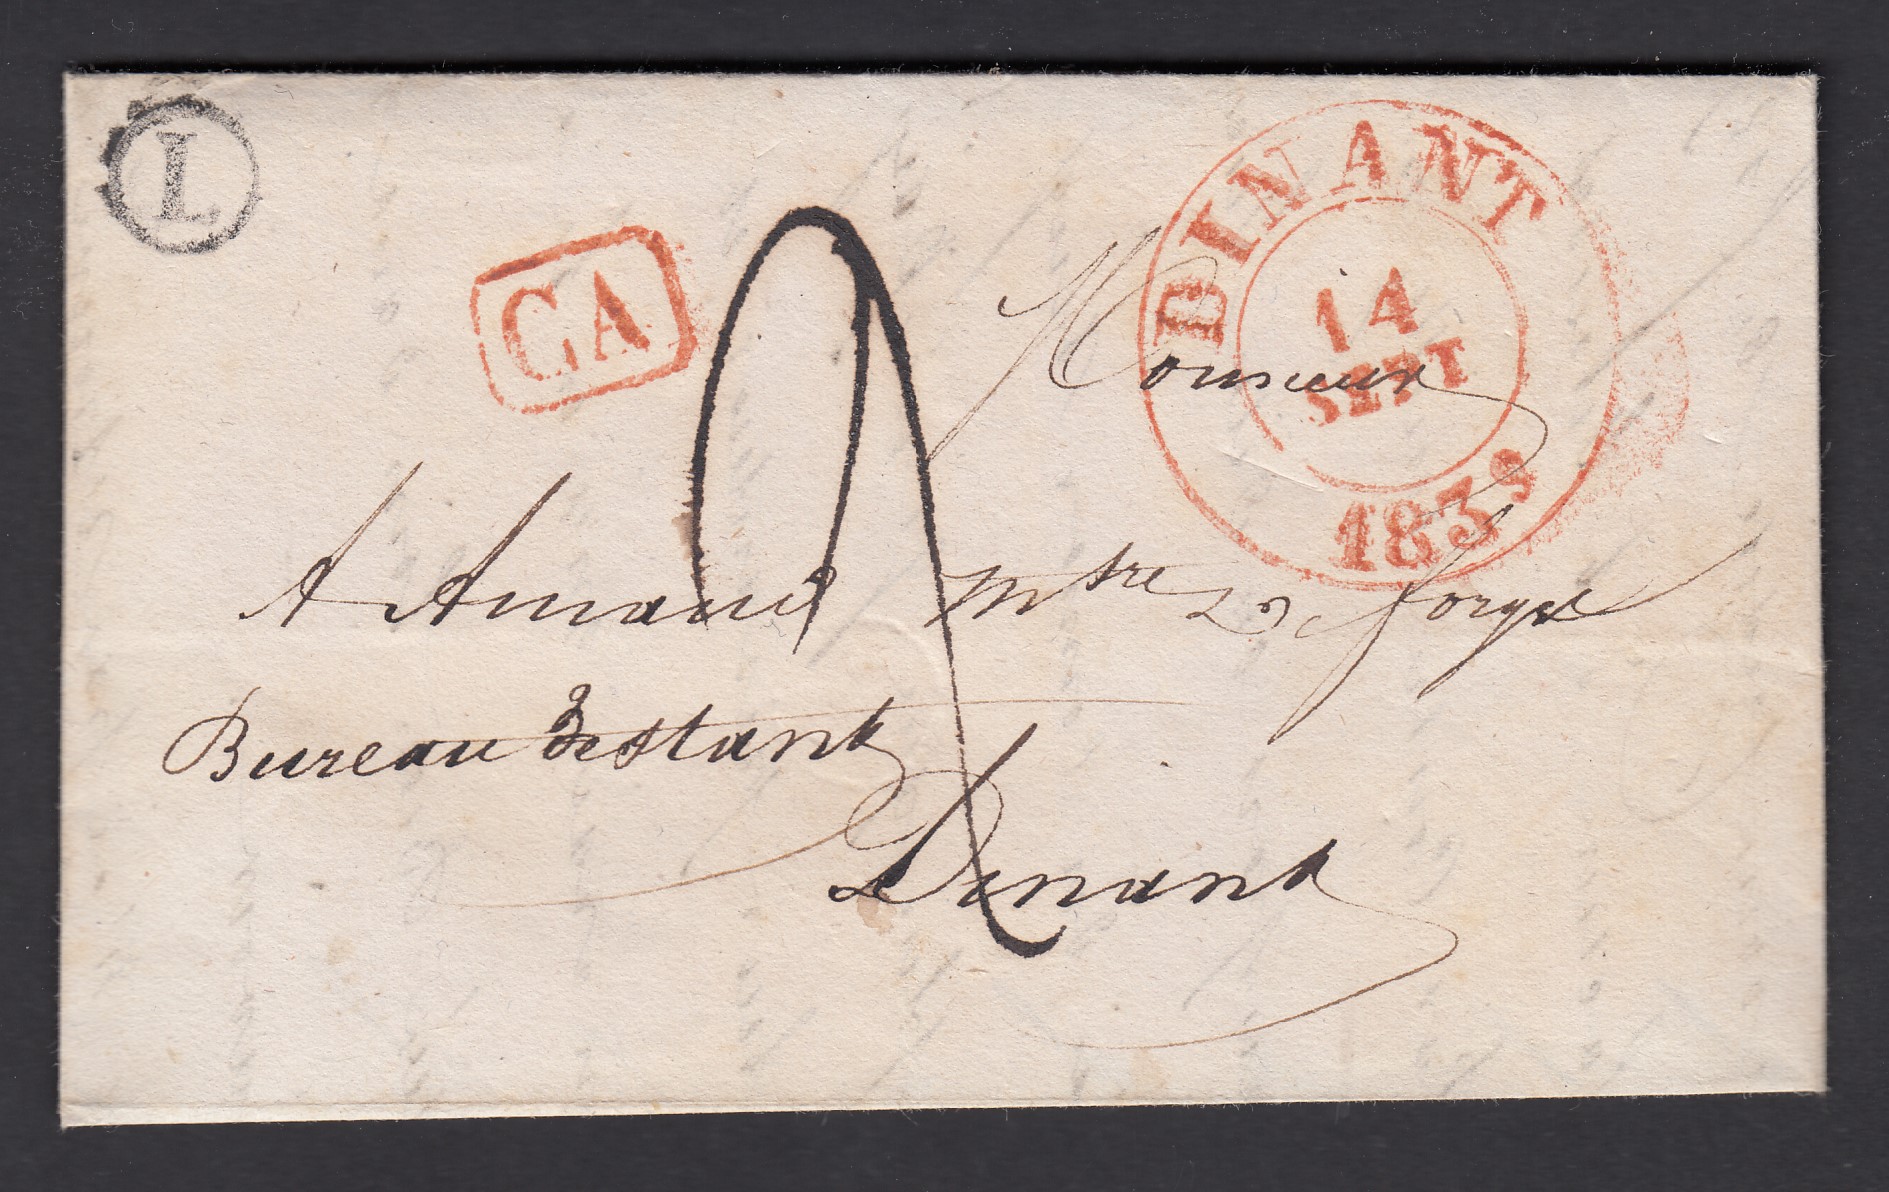 L
CA
DINANT
14
SEPT
1839
Monsieur
A Amand Mtre de forges
Bureau restant
Dinant
2